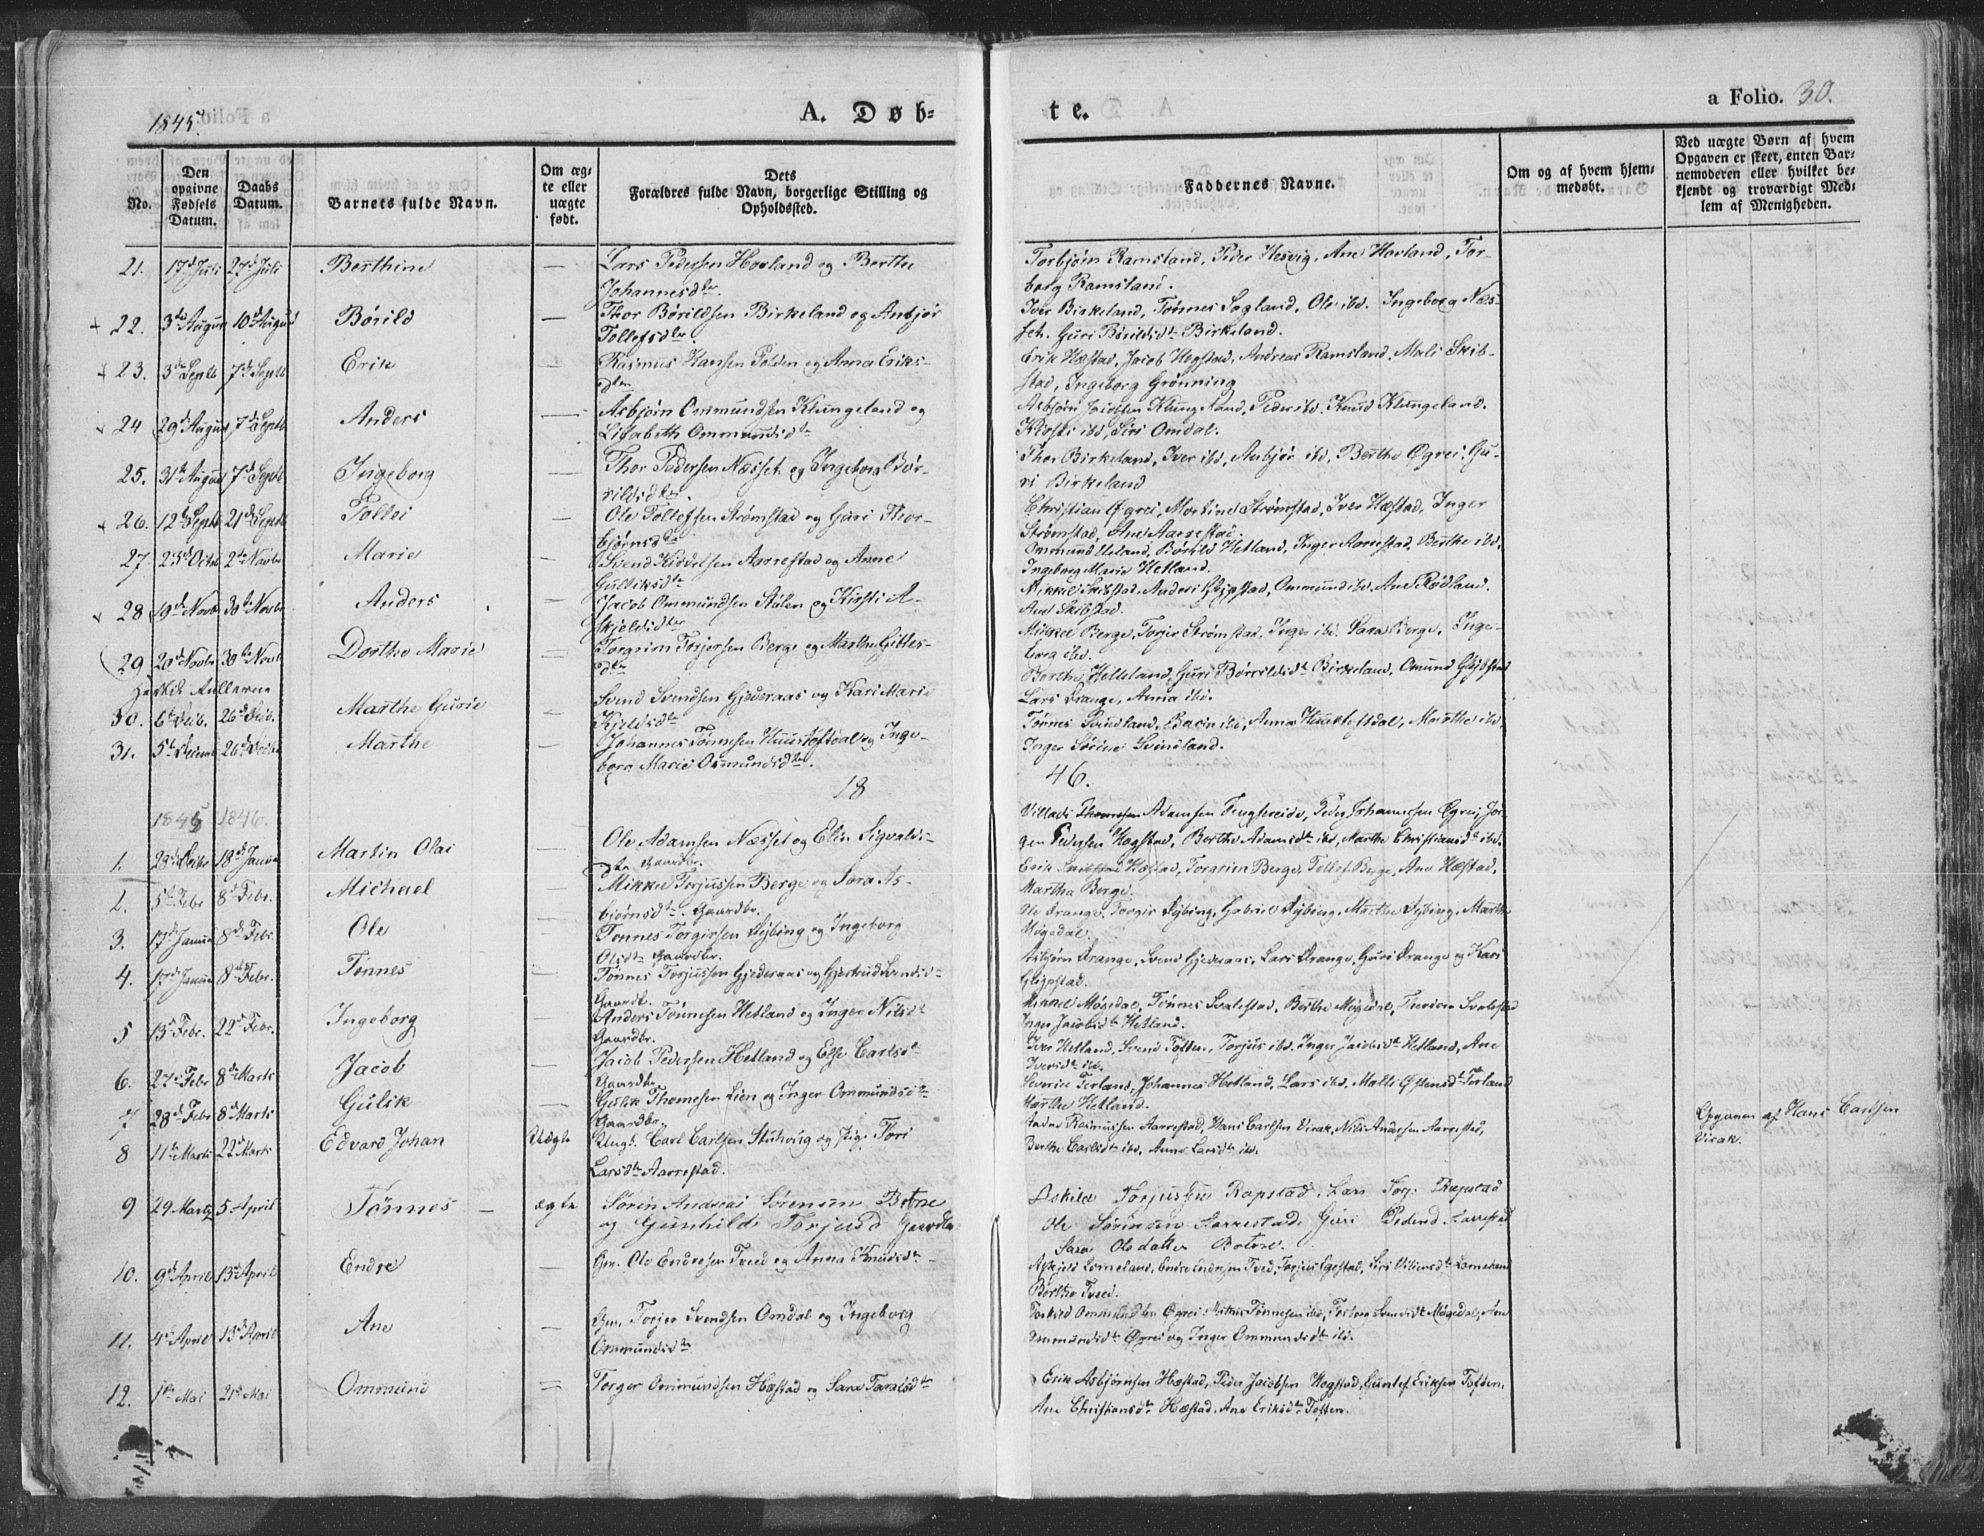 1845.
A. Døb-
te.
a Folio. 30.
No.
Den opgivne Fødsels Datum.
Daabs Datum.
Barnets fulde Navn.
Om ægte eller uægte født.
Dets Forældres fulde Navn, borgerlige Stilling og Opholdssted.
Faddernes Navne.
Om og af hvem hjemmedøbt.
Ved uægte Børn af hvem Opgaven er skeet, enten Barnemoderen eller hvilket bekjendt og troværdigt Medlem af Menigheden.
21. 17d Juli 27d Juli Berthine — Lars Pedersen Hovland og Berthe
Johannesdtr.
Torbjørn Ramsland, Peder Hesvig, Ane Hovland, Tor-
borg Ramsland.
22. 3die August 10d August Børild — Thor Børildsen Birkeland og Anbjør
Tollefsdtr
Iver Birkeland, Tønnes Søgland, Ole ibd. Ingeborg Næs-
set, Guri Børildsdtr Birkeland.
23. 3die Septb 7d Septb Erik — Rasmus Hansen Tolden og Anna Eriks-
dtr
Erik Hæstad, Jacob Hegstad, Andreas Ramsland, Mali Skib-
stad, Ingeborg Grønning
24 29d August 7d Septb Anders — Asbjørn Ommundsen Klungeland og
Lisabeth Ommundsdtr
Asbjørn Jacobsen Klungeland, Peder ibd, Knud Klungeland,
Kirsti ibd, Siri Omdal.
25. 31te August 7d Septb Ingeborg — Thor Pedersen Næsset og Ingeborg Bør-
rildsdtr.
Thor Birkeland, Iver ibd, Anbjør ibd, Berthe Øgrei, Gu-
ri Birkeland
26. 12te Septb 21d Septb Tollei — Ole Tollefsen Strømstad og Guri Thor-
bjørnsdtr
Christian Øgrei, Martine Strømstad, Iver Hæstad, Inger
Strømstad, Ane Aarrestad.
27 23d Octob 2den Novbr Marie — Svend Kiddelsen Aarrestad og Anne
Gulliksdtr
Ommund Ueland, Børild Hetland, Inger Aarrestad, Berthe ibd,
Ingeborg Marie Hetland.
28 19d Novbr 30te Novbr Anders — Jacob Ommundsen Stølen og Kirsti A-
skjeldsdtr
Mikkel Skibstad, Anders Glypstad, Ommund ibd, Ane Rødland,
Ane Skibstad.
29 20d Novbr 30te Novbr Dorthe Marie — Torgrim Torjersen Berge og Marthe Gittes-
dtr
Mikkel Berge, Torjer Strømstad, Inger ibd, Sara Berge, Inge-
borg ibd.
30. 6te Decb. 26d Decb. Marthe Gurie — Svend Svendsen Gjederaas og Kari Marie
Kjeldsdtr
Berthe Helleland, Guri Børrildsdtr Birkeland, Omund Glypstad
Lars Drange, Anna ibd.
31. 5te Decemb 26d Decbr Marthe — Johannes Tønnesen Huustoftdal og Inge-
borg Marie Osmundsdtr.
Tønnes Svindland, ibd, Anna Huustoftdal, Marthe ibd,
Inger Sørine Svindland.
18
46.
1845 1846.
1. 29d Decbr 18d Januar Martin Olai — Ole Adamsen Næsset og Elin Sigvalds-
dtr Gaardbr.
Villads Adamsen Fengsereide, Peder Johannesen Øgrei, Jør-
gen Pedersen Hegstad, Berthe Adamsdtr ibd, Marthe Christiansdtr ibd.
2. 5te Febr 8d Febr. Michael — Mikkel Torjussen Berge og Sara As-
bjørnsdtr. Gaardbr.
Erik Hæstad, Torgrim Berge, Tollef Berge, Ane Hæstad,
Martha Berge.
3. 17d Januar 8d Febr. Ole — Tønnes Torgersen Dybing og Ingeborg
Olsdtr Gaardbr.
Ole Drange, Torger Dybing, Gabriel Dybing, Marthe Dybing, Marthe
Møgedal.
4. 17d Januar 8d Febr. Tønnes — Tønnes Torjussen Gjederaas og Gjertrud Svendsd-
Gaardb.
Asbjørn Drange, Svend Gjederaas, Lars Drange, Guri Drange og Kari
Glypstad.
5 13d Febr. 22d Febr. Ingeborg — Anders Tønnesen Hetland og Inger Nilsdtr
Gaardbr.
Mikkel Møgedal, Tønnes Svalestad, Berthe Møgedal, Svalestad
Inger Jacobsdtr Hetland.
6. 27d Febr 8d Marts Jacob — Jacob Pedersen Hetland og Else Carlsdtr
Gaardbr.
Iver Hetland, Svend Toften, Torjus ibd, Inger Jacobsdtr Hetland, Ane
Iversdtr ibd.
7 28d Febr 8d Marts Gulik — Gulik Thomesen Lien og Inger Ommundsdtr
Gaardbr.
Severine Terland, Johannes Hetland, Lars ibd, Malli Østensdtr Terland
Marthe Hetland.
8 11te Marts 22d Marts Edvard Johan Uægte Ungk. Carl Carlsen Stuhoug og Pige Tori
Larsdtr Aarrestad.
Rasmussen Aarrestad, Hans Carlsen Virak, Nils Andersen Aarrestad,
Berthe Carlsdtr ibd, Anne Larsdtr ibd.
Opgaven af Hans Carlsen
Virak.
9 29 Marts 5 April Tønnes — ægte Søren Andreas Sørensen Botne
og Gunhild Torjusd Gaardbr
Askild Torjussen Rapstad, Lars Torj. Rapstad
Ole Sørensen Aarrestad, Guri Pedersd Aarrestad
Sara Olsdatter Botne.
10. 9d April 13d April Endre — Gm. Ole Endresen Tveed og Anna Knudsdtr
Askjeld Lomeland, Endre Endresen Tved, Torjus Egestad, Siri Lomeland
Berthe Tveed.
11. 4d April 13d April Ane — Gm. Torjer Svendsen Omdal og Ingeborg
Ommundsdtr
Ommundsen Øgrei, Tønnesen ibd, Torborg Svendsdtr Møgedal, Ane
Ommundsdtr Øgrei og Inger Ommundsdtr ibd.
12. 1ste Mai 21d Mai Ommund — Torger Ommundsen Hæstad og Sara Taraldsdtr
Erik Asbjørnsen Hæstad, Peder Jacobsen Hegstad, Eriksen Toften,
Ane Christiansdtr Hæstad, Ane Eriksdtr Toften.